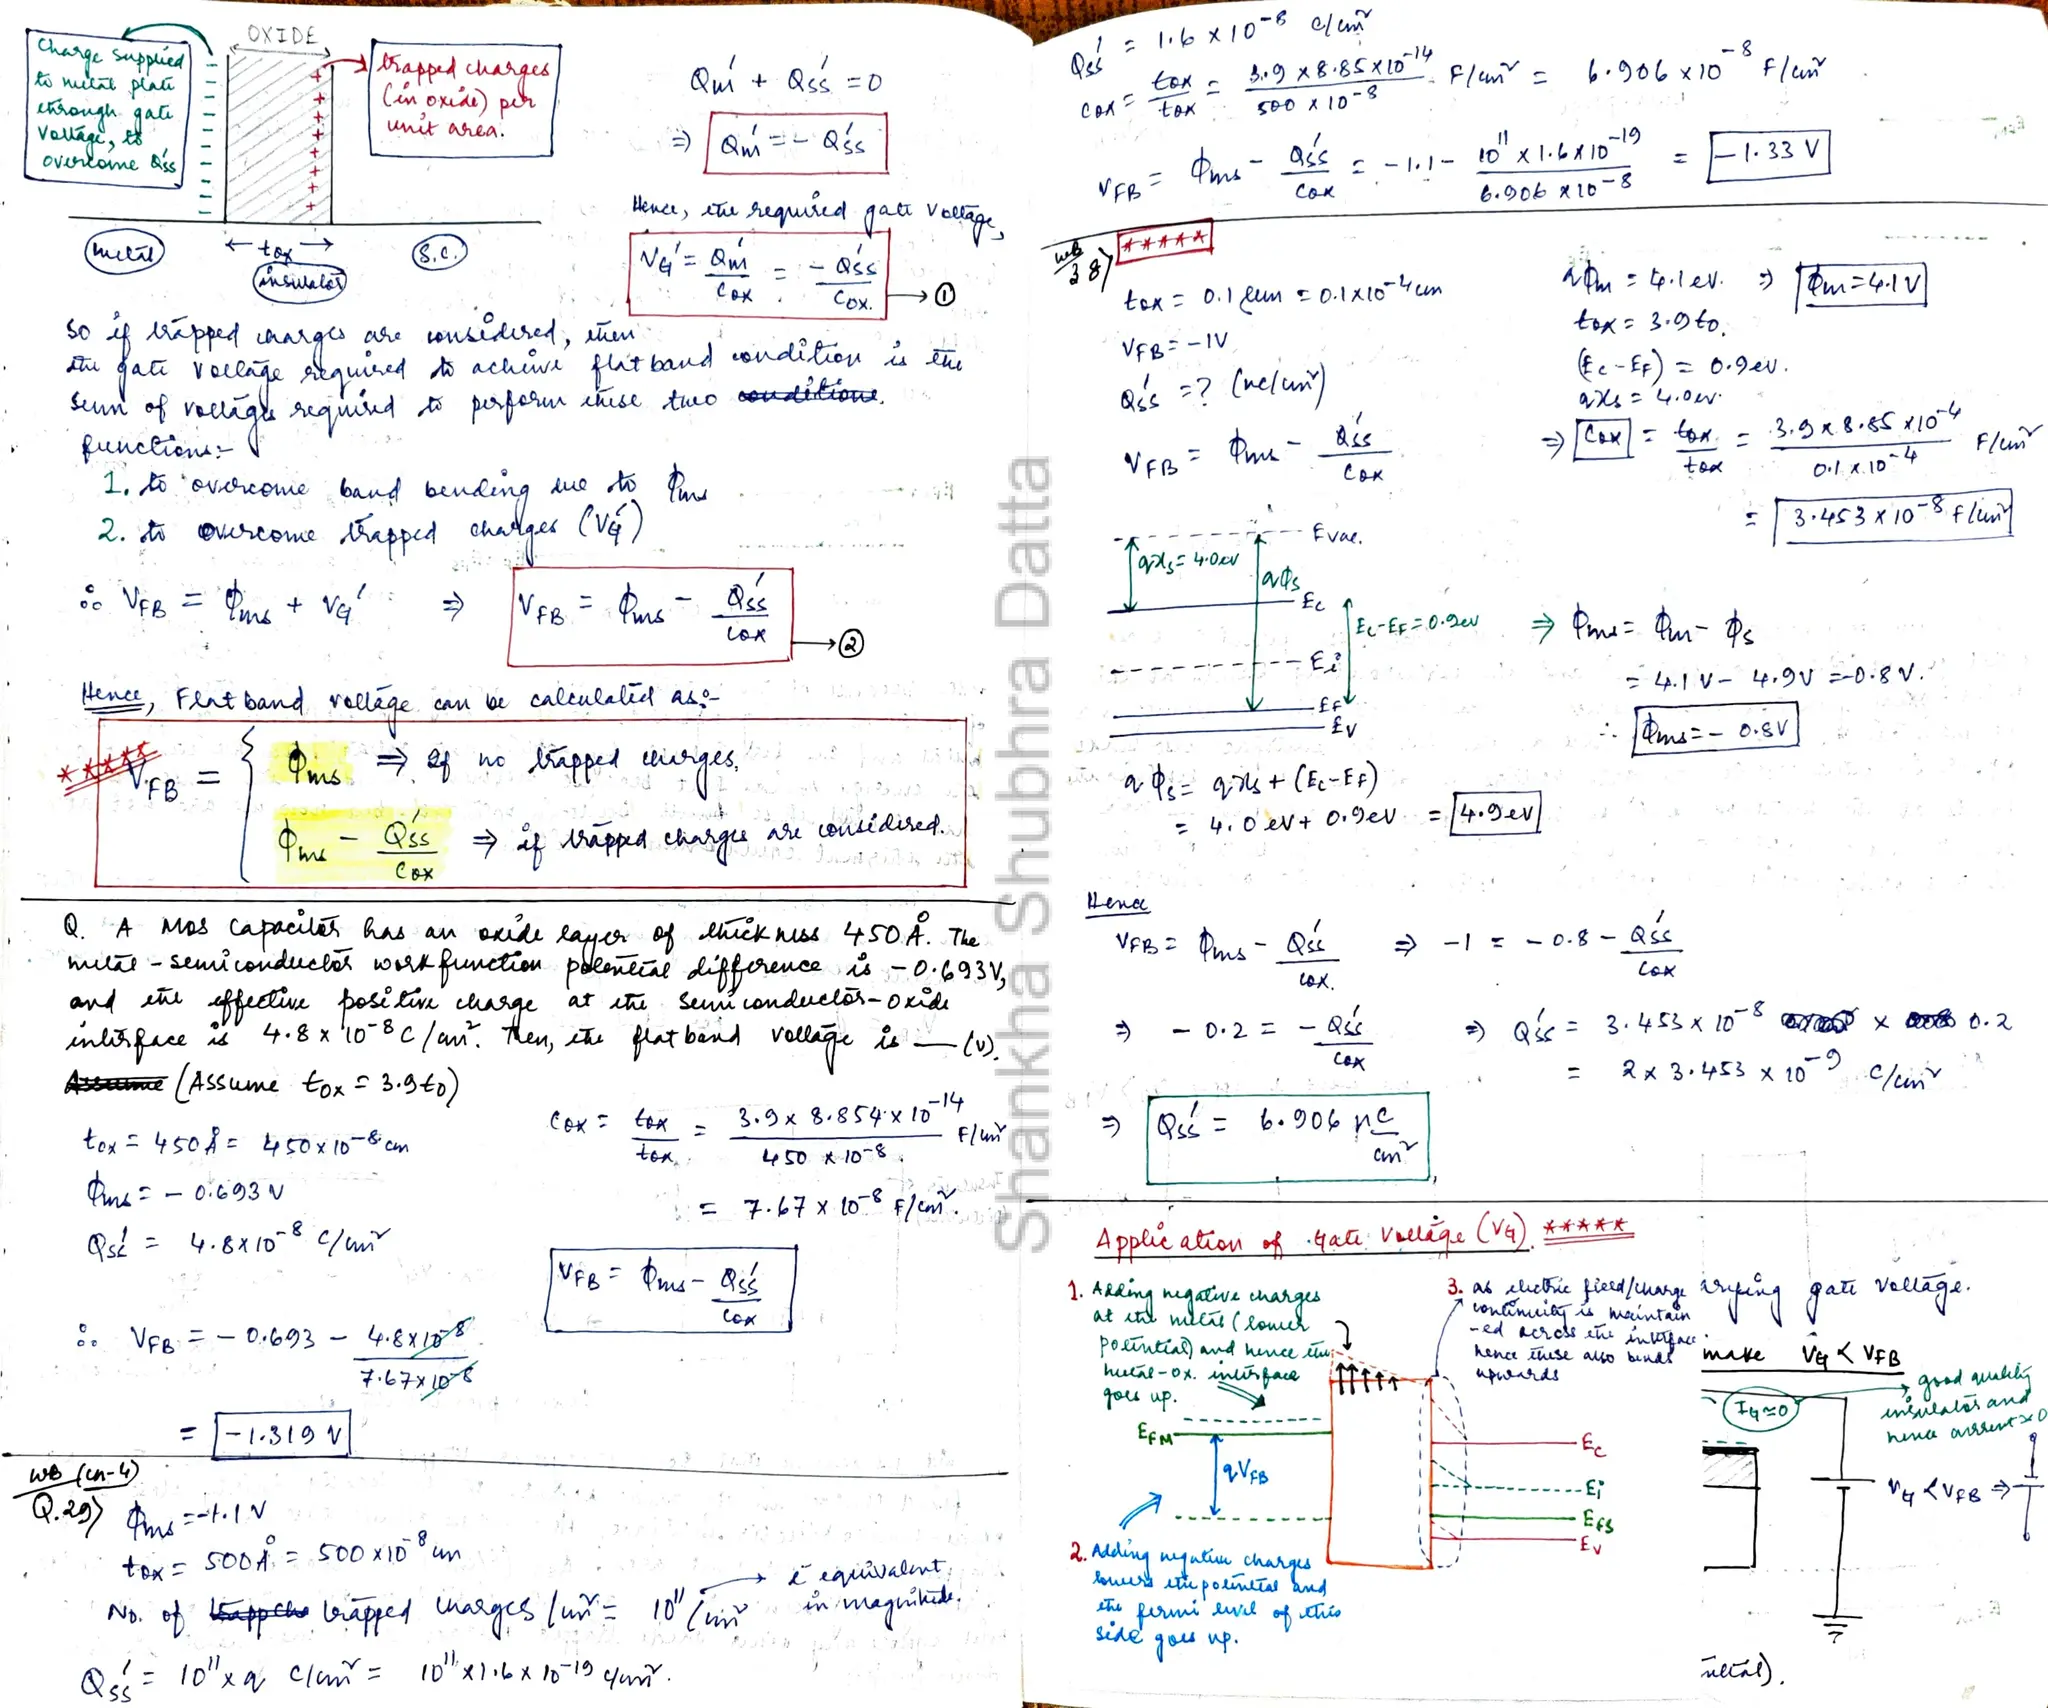 OXIDE
Charge supplied
to metal plate
through gate
voltage, to
overcome Q'ss
trapped charges
(in oxide) per
unit area.
Metal
← tox →
insulator
S.C.
Qm' + Qss' = 0
⇒ Qm' = - Qss'
Hence, the required gate voltage,
VG' = Qm'/Cox = - Qss'/Cox. → ①
So if trapped charges are considered, then
the gate voltage required to achieve flatband condition is the
sum of voltages required to perform these two conditions.
functions:-
1. to overcome band bending due to Φms
2. to overcome trapped charges (VG')
∴ VFB = Φms + VG' ⇒ VFB = Φms - Qss'/Cox → ②
Hence, Flatband voltage can be calculated as:-
***** VFB = { Φms ⇒ If no trapped charges,
Φms - Qss'/Cox ⇒ if trapped charges are considered.
Q. A MOS capacitor has an oxide layer of thickness 450Å. The
metal-semiconductor workfunction potential difference is -0.693V,
and the effective positive charge at the semiconductor-oxide
interface is 4.8 x 10^-8 C/cm². Then, the flatband voltage is — (V).
Assume (Assume ϵox = 3.9ϵ0)
tox = 450Å = 450x10^-8 cm
Φms = - 0.693 V
Qss' = 4.8x10^-8 C/cm²
Cox = ϵox/tox = 3.9 x 8.854 x 10^-14 / 450 x 10^-8 F/cm²
= 7.67 x 10^-8 F/cm².
VFB = Φms - Qss'/Cox
∴ VFB = - 0.693 - 4.8x10^-8 / 7.67x10^-8
= -1.319 V
WB (Ch-4)
Q.29) Φms = -1.1 V
tox = 500Å = 500x10^-8 cm
No. of trapped charges /cm² = 10^11 /cm² → e⁻ equivalent
in magnitude.
Qss' = 10^11 x q C/cm² = 10^11 x1.6 x 10^-19 C/cm².
Qss' = 1.6 x 10^-8 C/cm²
Cox = ϵox/tox = 3.9 x 8.85x10^-14 / 500 x 10^-8 F/cm² = 6.906 x 10^-8 F/cm²
VFB = Φms - Qss'/Cox = -1.1 - 10^11 x 1.6x10^-19 / 6.906 x 10^-8 = -1.33 V
WB
38) *****
tox = 0.1 μm = 0.1x10^-4 cm
VFB = -1V
Qss' = ? (nC/cm²)
VFB = Φms - Qss'/Cox
qΦm = 4.1 eV. ⇒ Φm = 4.1V
ϵox = 3.9ϵ0.
(Ec-EF) = 0.9eV.
qχs = 4.0eV.
⇒ Cox = ϵox/tox = 3.9 x 8.85 x10^-4 / 0.1 x 10^-4 F/cm²
= 3.453 x 10^-8 F/cm²
Evac.
qχs = 4.0eV
qΦs
Ec
Ec-EF = 0.9eV
Ei
EF
EV
⇒ Φms = Φm - Φs
= 4.1 V - 4.9V = -0.8 V.
∴ Φms = - 0.8V
qΦs = qχs + (Ec-EF)
= 4.0 eV + 0.9eV = 4.9eV
Hence
VFB = Φms - Qss'/Cox. ⇒ -1 = -0.8 - Qss'/Cox
⇒ -0.2 = - Qss'/Cox ⇒ Qss' = 3.453 x 10^-8 x 0.2
= 2 x 3.453 x 10^-9 C/cm²
⇒ Qss' = 6.906 nC/cm²
Application of Gate Voltage (VG) *****
1. Adding negative charges
at the metal (lower
potential) and hence the
metal-ox. interface
goes up.
3. as electric field/charge
continuity is maintain
-ed across the interface
hence these also bends
upwards
rying gate voltage.
make VG < VFB
IG≃0
good quality
insulator and
hence current ≃0
VG < VFB ⇒
EFM
qVFB
Ec
Ei
EFS
EV
2. Adding negative charges
lowers the potential and
the fermi level of this
side goes up.
metal).
Shankha Shubhra Datta